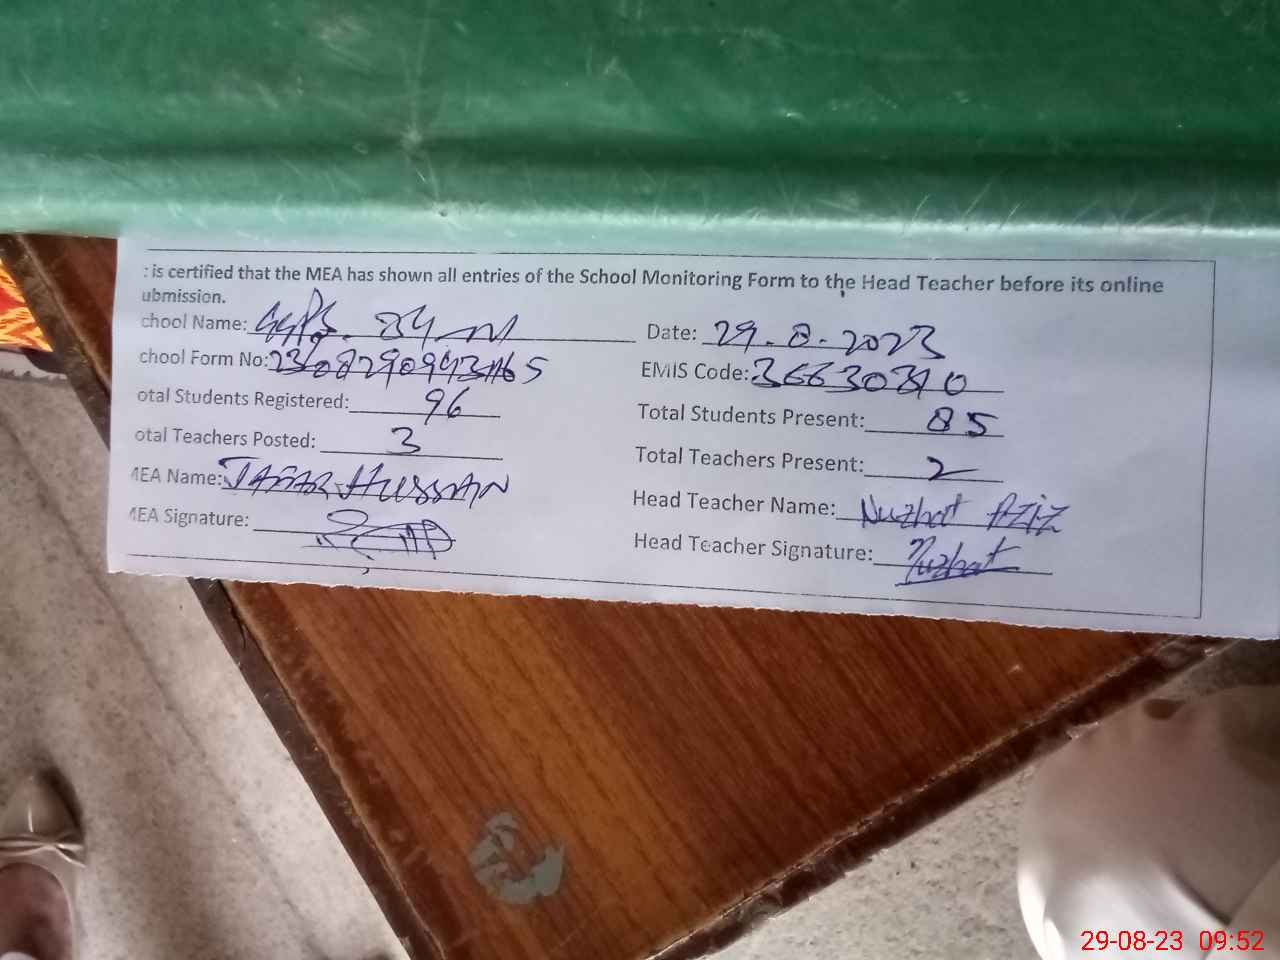 : is certified that the MEA has shown all entries of the School Monitoring Form to the Head Teacher before its online
ubmission.
chool Name: GGPS. 84 M Date: 29.8.2023
chool Form No: EMIS Code: 36630310
otal Students Registered: 96 Total Students Present: 85
otal Teachers Posted: 3 Total Teachers Present: 2
MEA Name: JAFAR HUSSAIN Head Teacher Name: Nuzhat Aziz
MEA Signature: Head Teacher Signature: Nuzhat
29-08-23 09:52